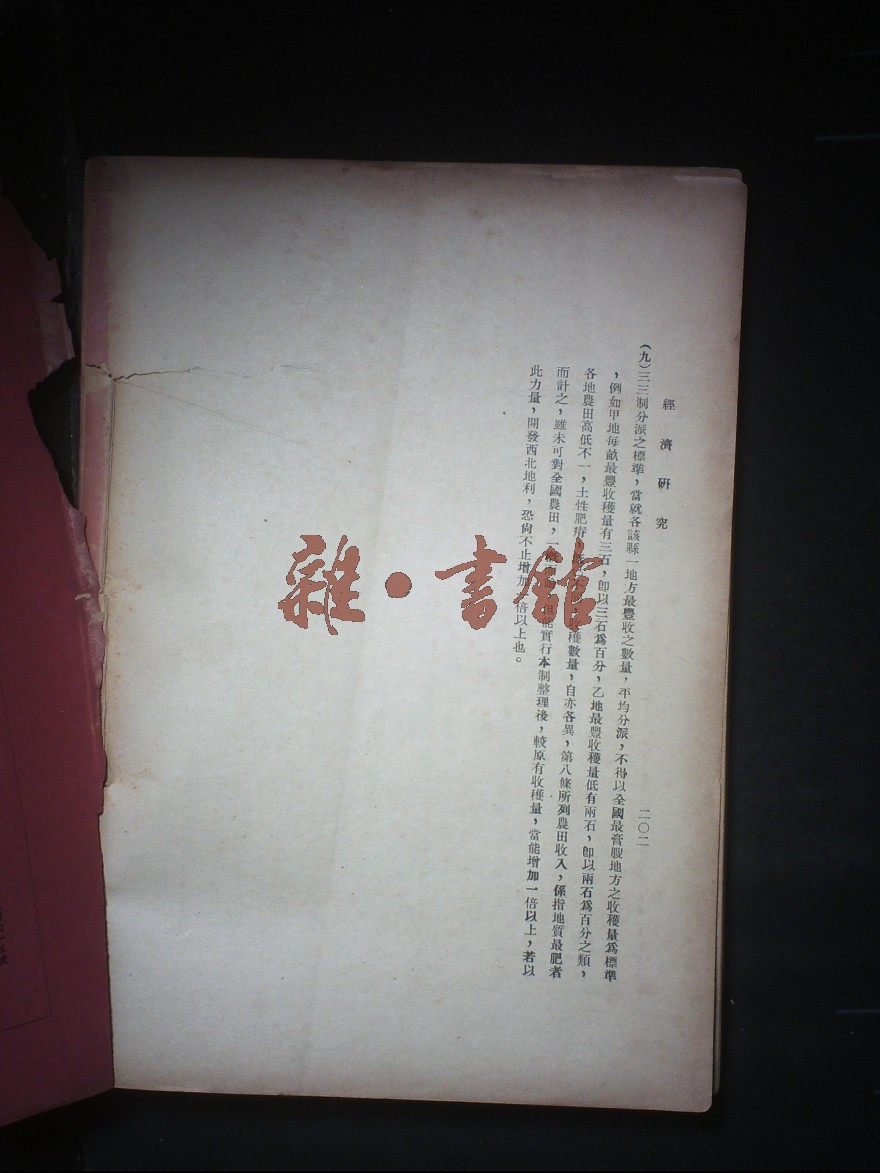 經濟研究
二〇二
(九)三三制分派之標準，當就各該縣一地方最豐收之數量，平均分派，不得以全國最膏腴地方之收穫量爲標準
，例如甲地每畝最豐收穫量有三石，卽以三石爲百分，乙地最豐收穫量低有兩石，卽以兩石爲百分之類，
各地農田高低不一，土性肥瘠，收穫數量，自亦各異，第八條所列農田收入，係指地質最肥者
而計之，雖未可對全國農田，一能實行本制整理後，較原有收穫量，當能增加一倍以上，若以
此力量，開發西北地利，恐尙不止增加倍以上也。
雜·書館